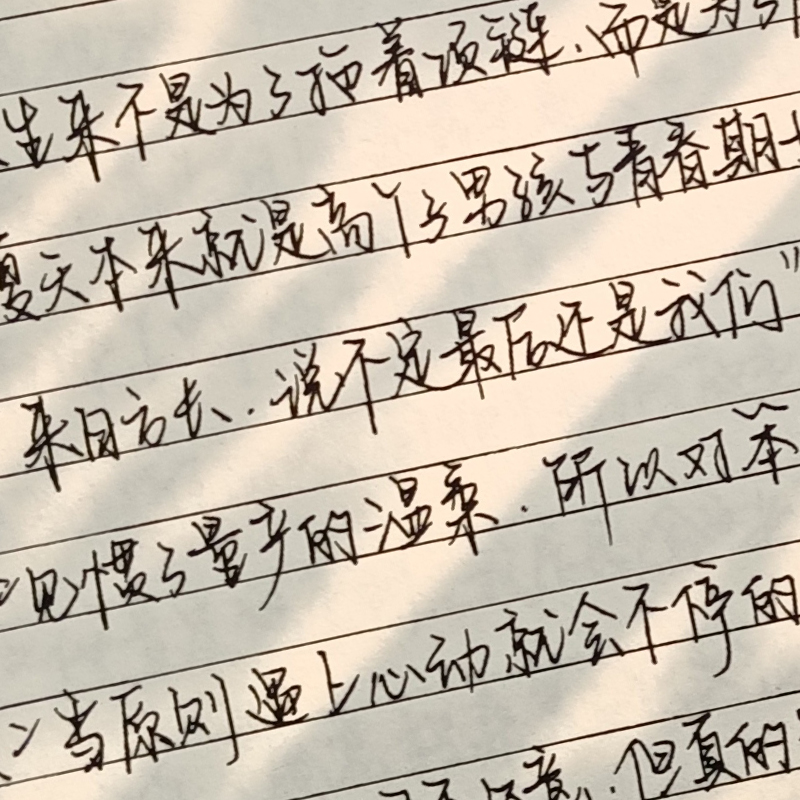 生来不是为了拖着项链.而是为
夏天本来就是高个子男孩与青春期
来日方长.说不定最后还是我们"
见惯了量产的温柔.所以对笨
当原则遇上心动就会不停的
意.但真的